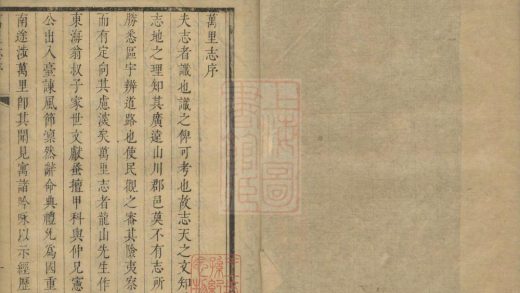 萬里志序
夫志者識也識之俾可考也故志天之文知
志地之理知其廣遠山川郡邑莫不有志所
勝悉區宇辨道路也使民觀之審其險夷察
而有定向其慮深矣萬里志者龍山先生作
東海翁叔子家世文獻蚤擅甲科與仲兄憲
公出入臺諫風節凜然辭命典禮允為國重
南逵涉萬里即其聞見寓諸吟咏以示經歷
上海圖書館藏